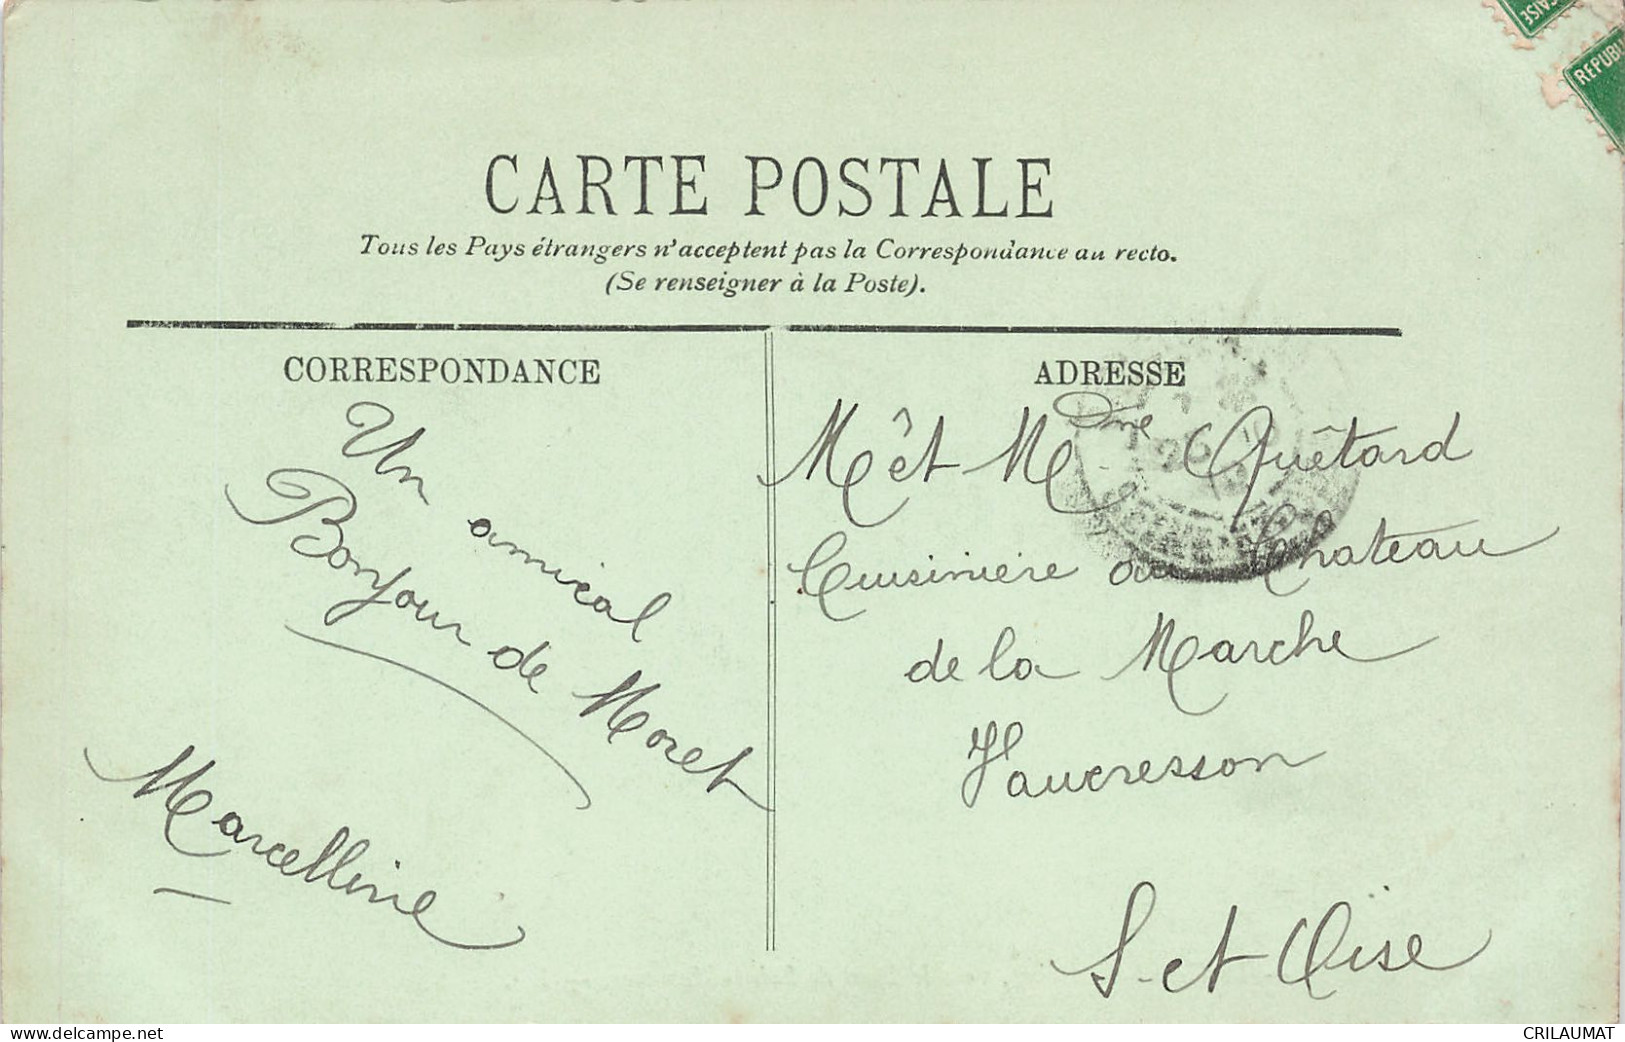 AISE
REPUBLI
CARTE POSTALE
Tous les Pays étrangers n'acceptent pas la Correspondance au recto.
(Se renseigner à la Poste).
CORRESPONDANCE
Un amical
Bonjour de Moret
Marcelline
ADRESSE
M. et Mme Quêtard
Cuisiniere au Chateau
de la Marche
Vaucresson
S. et Oise
www.delcampe.net
CRILAUMAT